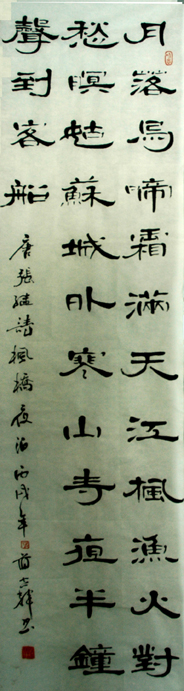 月落烏啼霜滿天江楓漁火對
愁瞑姑蘇城外寒山寺夜半鐘
聲到客船
唐張繼詩楓橋夜泊丙戌年書